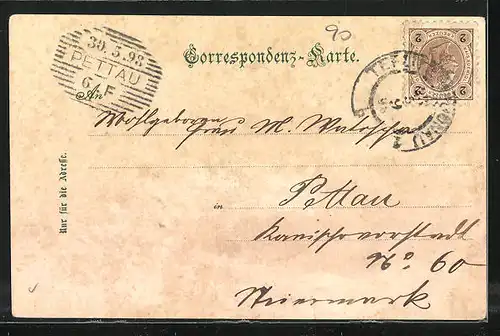 90
30.5.98
PETTAU
6-F
Correspondenz-Karte.
2 2
An
Wohlgeboren
Frau M.
in Pettau
Kanischavorstadt
No. 60
Steiermark
Nur für die Adresse.